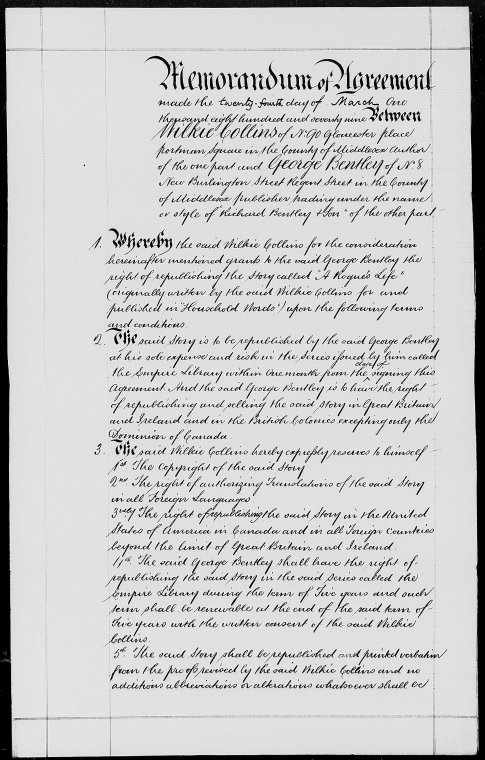 Memorandum of Agreement
made the twenty-fourth day of March One
thousand eight hundred and seventy nine Between
Wilkie Collins of No 90 Gloucester place
portman Square in the County of Middlesex Author
of the one part and George Bentley of No 8
New Burlington Street Regent Street in the County
of Middlesex publisher trading under the name
or style of "Richard Bentley & Son" of the other part
1. Whereby the said Wilkie Collins for the consideration
hereinafter mentioned grants to the said George Bentley the
right of republishing the Story called "A Rogue's Life"
(originally written by the said Wilkie Collins for and
published in "Household Words") upon the following terms
and conditions.
2. The said Story is to be republished by the said George Bentley
at his sole expense and risk in the Series issued by him called
the Empire Library within One month from the date of signing this
Agreement. And the said George Bentley is to have the right
of republishing and selling the said Story in Great Britain
and Ireland and in the British Colonies excepting only the
Dominion of Canada
3. The said Wilkie Collins hereby expressly reserves to himself
1st The Copyright of the said Story
2nd The right of authorizing Translations of the said Story
in all Foreign Languages.
3rdly The right of republishing the said Story in the United
States of America in Canada and in all Foreign Countries
beyond the limit of Great Britain and Ireland.
4th The said George Bentley shall have the right of
republishing the said Story in the said Series called the
Empire Library during the term of Five years and such
term shall be renewable at the end of the said term of
Five years with the written consent of the said Wilkie
Collins.
5th The said Story shall be republished and printed verbatim
from the proofs revised by the said Wilkie Collins and no
additions abbreviations or alterations whatsoever shall be